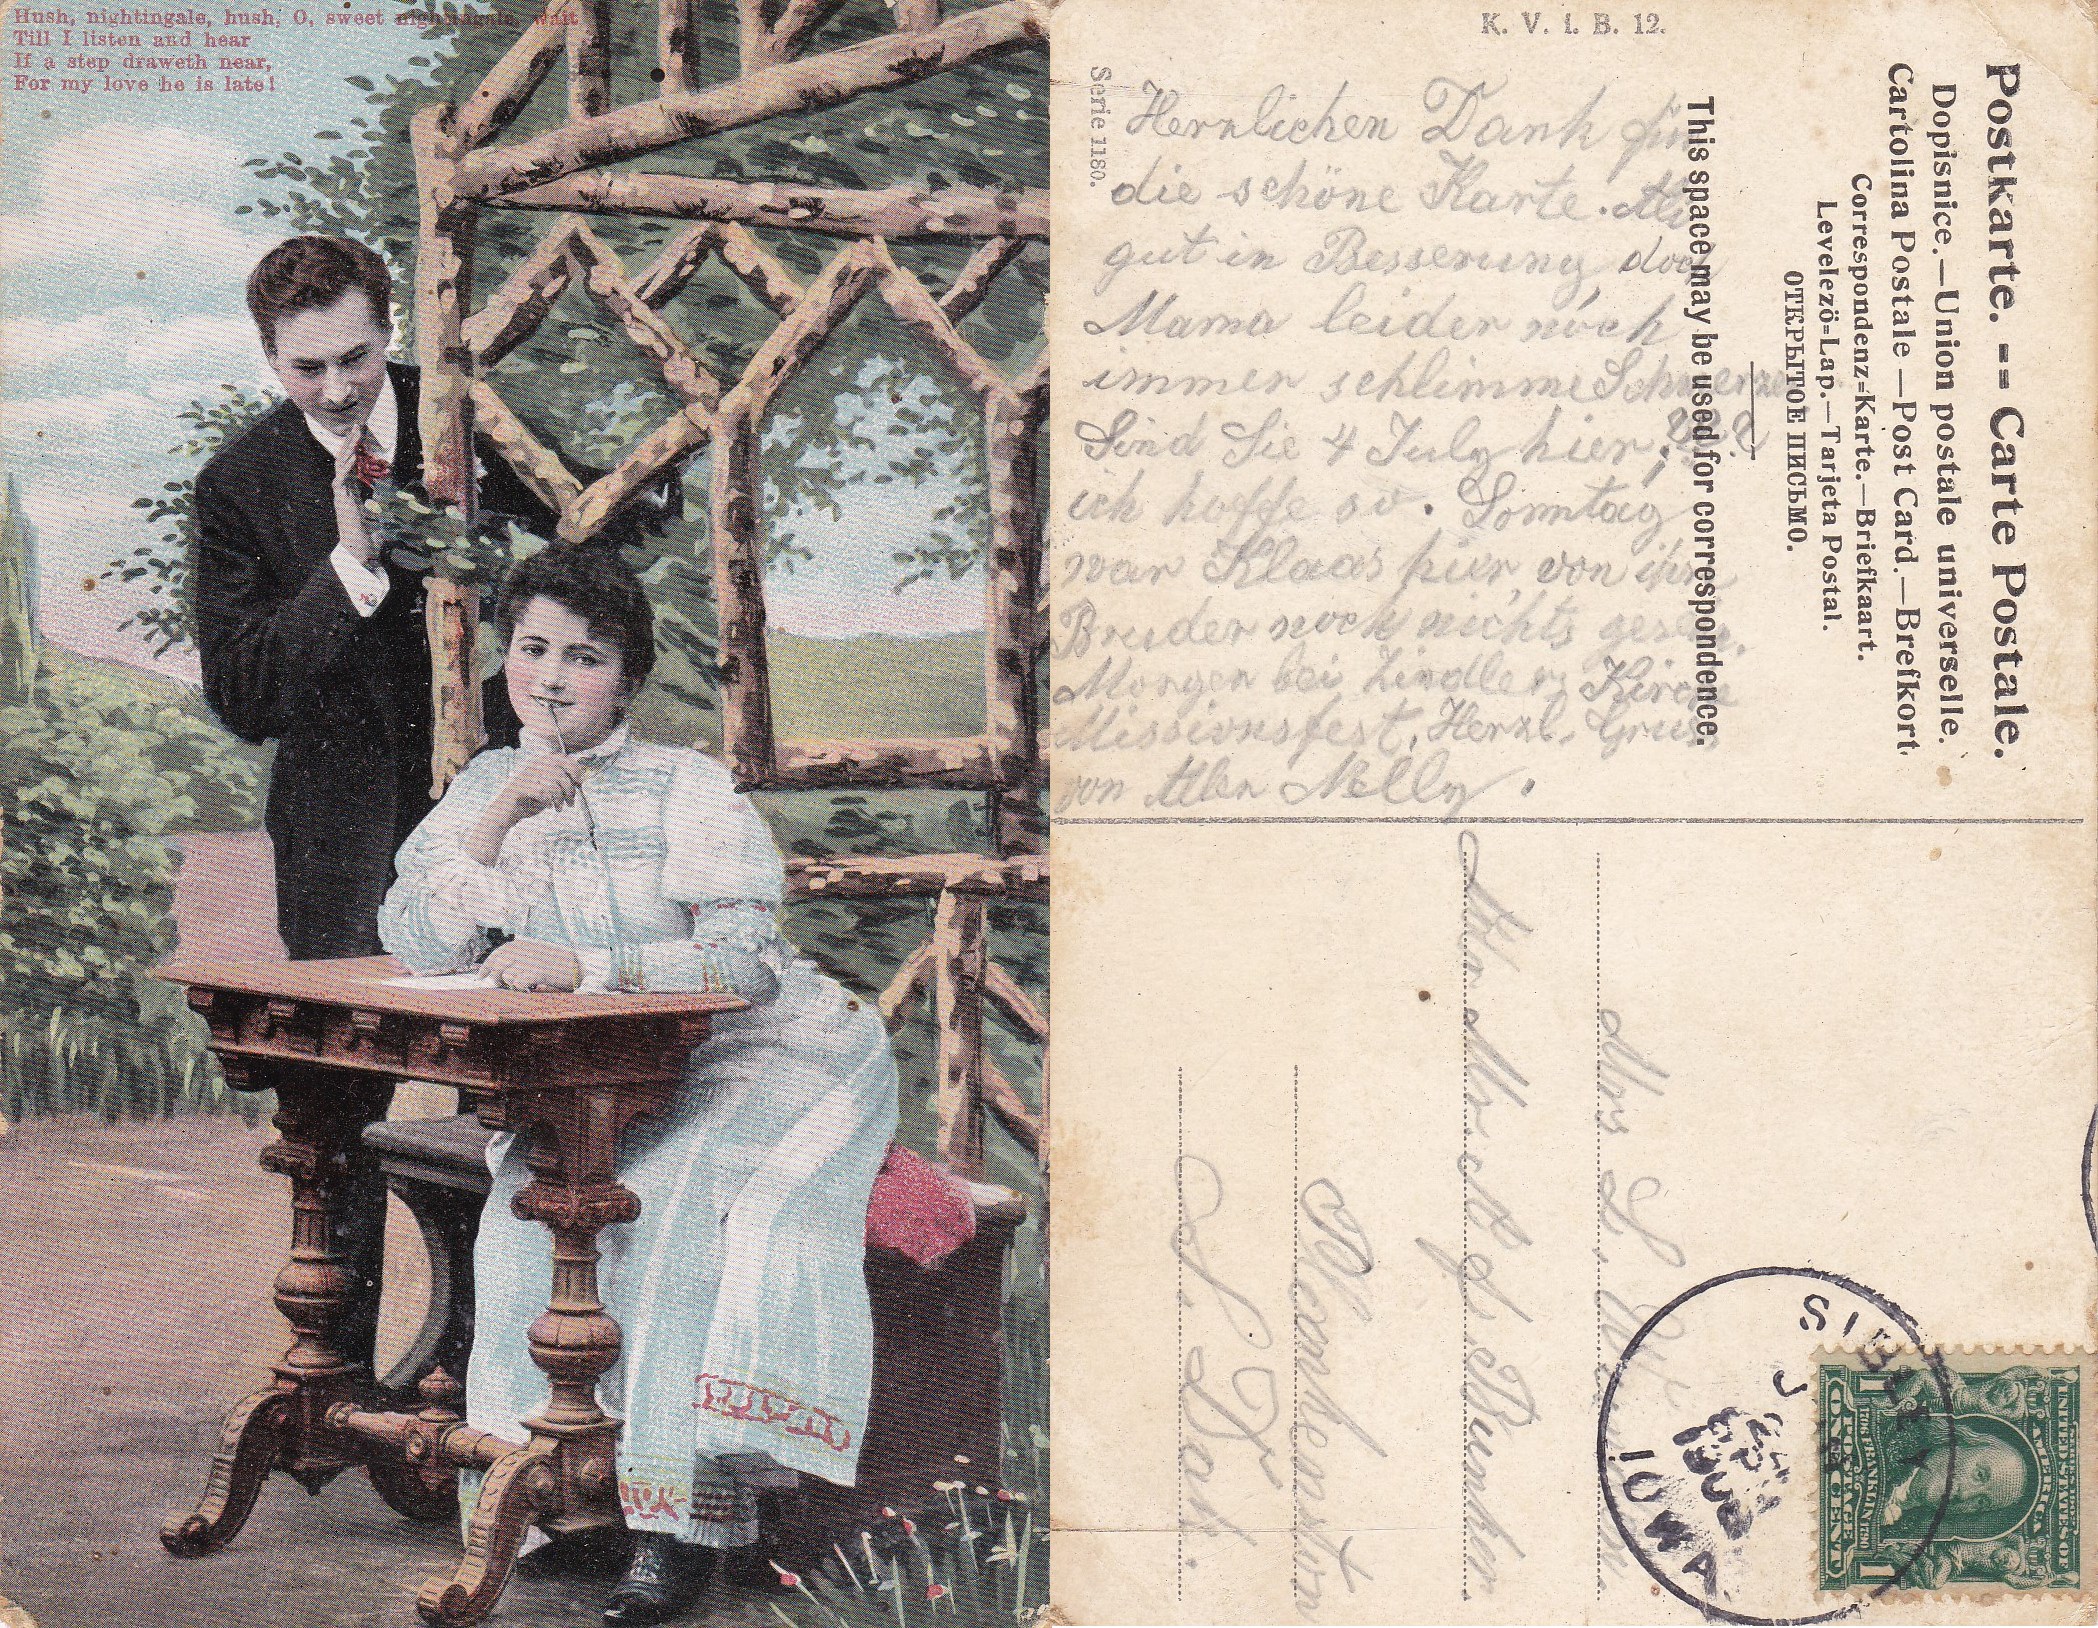 Hush, nightingale, hush; O, sweet nightingale, wait
Till I listen and hear
If a step draweth near,
For my love he is late!
K. V. i. B. 12.
Serie 1180.
Herzlichen Dank für
die schöne Karte.
gut in Besserung, doch
Mama leider noch
immer schlimme Schmerzen
Sind Sie 4 July hier;
ich hoffe so. Sonntag
war Klaas hier, von ihrem
Bruder noch nichts gesehen.
Morgen bei Kirche
Missionsfest, Herzl. Gruss
von Allen Nelly.
This space may be used for correspondence.
Postkarte. -- Carte Postale.
Dopisnice.—Union postale universelle.
Cartolina Postale—Post Card.—Brefkort.
Correspondenz-Karte.—Briefkaart.
Levelező-Lap.—Tarjeta Postal.
ОТКРЫТОЕ ПИСЬМО.
Mrs
Bunker.
S. Dak.
SIBLEY
1908
IOWA.
UNITED STATES OF AMERICA
1 ONE CENT 1